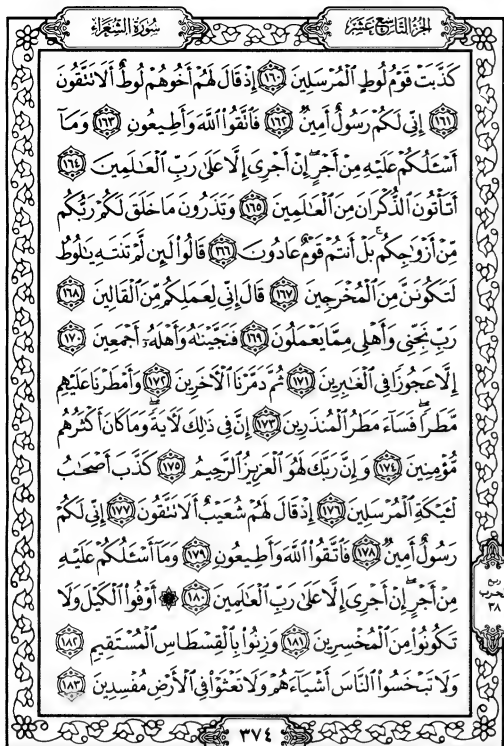 الجزء التاسع عشر
سورة الشعراء
كَذَّبَتْ قَوْمُ لُوطٍ ٱلْمُرْسَلِينَ ١٦٠ إِذْ قَالَ لَهُمْ أَخُوهُمْ لُوطٌ أَلَا تَتَّقُونَ
١٦١ إِنِّى لَكُمْ رَسُولٌ أَمِينٌ ١٦٢ فَٱتَّقُوا۟ ٱللَّهَ وَأَطِيعُونِ ١٦٣ وَمَآ
أَسْـَٔلُكُمْ عَلَيْهِ مِنْ أَجْرٍ ۖ إِنْ أَجْرِىَ إِلَّا عَلَىٰ رَبِّ ٱلْعَـٰلَمِينَ ١٦٤
أَتَأْتُونَ ٱلذُّكْرَانَ مِنَ ٱلْعَـٰلَمِينَ ١٦٥ وَتَذَرُونَ مَا خَلَقَ لَكُمْ رَبُّكُم
مِّنْ أَزْوَٰجِكُم ۚ بَلْ أَنتُمْ قَوْمٌ عَادُونَ ١٦٦ قَالُوا۟ لَئِن لَّمْ تَنتَهِ يَـٰلُوطُ
لَتَكُونَنَّ مِنَ ٱلْمُخْرَجِينَ ١٦٧ قَالَ إِنِّى لِعَمَلِكُم مِّنَ ٱلْقَالِينَ ١٦٨
رَبِّ نَجِّنِى وَأَهْلِى مِمَّا يَعْمَلُونَ ١٦٩ فَنَجَّيْنَـٰهُ وَأَهْلَهُۥٓ أَجْمَعِينَ ١٧٠
إِلَّا عَجُوزًا فِى ٱلْغَـٰبِرِينَ ١٧١ ثُمَّ دَمَّرْنَا ٱلْـَٔاخَرِينَ ١٧٢ وَأَمْطَرْنَا عَلَيْهِم
مَّطَرًا ۖ فَسَآءَ مَطَرُ ٱلْمُنذَرِينَ ١٧٣ إِنَّ فِى ذَٰلِكَ لَـَٔايَةً ۖ وَمَا كَانَ أَكْثَرُهُم
مُّؤْمِنِينَ ١٧٤ وَإِنَّ رَبَّكَ لَهُوَ ٱلْعَزِيزُ ٱلرَّحِيمُ ١٧٥ كَذَّبَ أَصْحَـٰبُ
لْـَٔيْكَةِ ٱلْمُرْسَلِينَ ١٧٦ إِذْ قَالَ لَهُمْ شُعَيْبٌ أَلَا تَتَّقُونَ ١٧٧ إِنِّى لَكُمْ
رَسُولٌ أَمِينٌ ١٧٨ فَٱتَّقُوا۟ ٱللَّهَ وَأَطِيعُونِ ١٧٩ وَمَآ أَسْـَٔلُكُمْ عَلَيْهِ
مِنْ أَجْرٍ ۖ إِنْ أَجْرِىَ إِلَّا عَلَىٰ رَبِّ ٱلْعَـٰلَمِينَ ١٨٠ ۞ أَوْفُوا۟ ٱلْكَيْلَ وَلَا
تَكُونُوا۟ مِنَ ٱلْمُخْسِرِينَ ١٨١ وَزِنُوا۟ بِٱلْقِسْطَاسِ ٱلْمُسْتَقِيمِ ١٨٢
وَلَا تَبْخَسُوا۟ ٱلنَّاسَ أَشْيَآءَهُمْ وَلَا تَعْثَوْا۟ فِى ٱلْأَرْضِ مُفْسِدِينَ ١٨٣
٣٨
٣٧٤